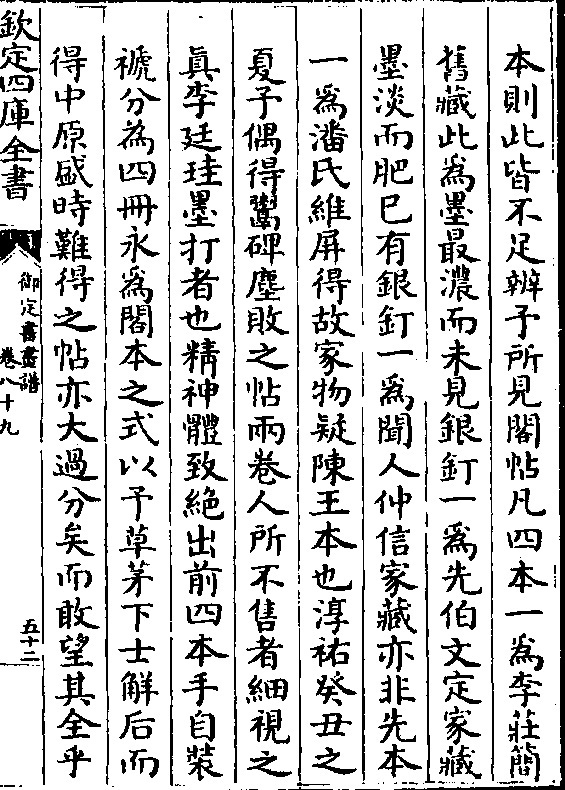 本則此皆不足辨予所見閣帖凡四本一為李莊簡
舊藏此為墨最濃而未見銀釘一為先伯文定家藏
墨淡而肥已有銀釘一為聞人仲信家藏亦非先本
一為潘氏維屏得故家物疑陳王本也淳祐癸丑之
夏予偶得鬻碑塵敗之帖兩卷人所不售者細視之
真李廷珪墨打者也精神體致絶出前四本手自裝
褫分為四冊永為閣本之式以予草茅下士解后而
得中原盛時難得之帖亦大過分矣而敢望其全乎
欽定四庫全書
御定書畫譜
卷八十九
五十二